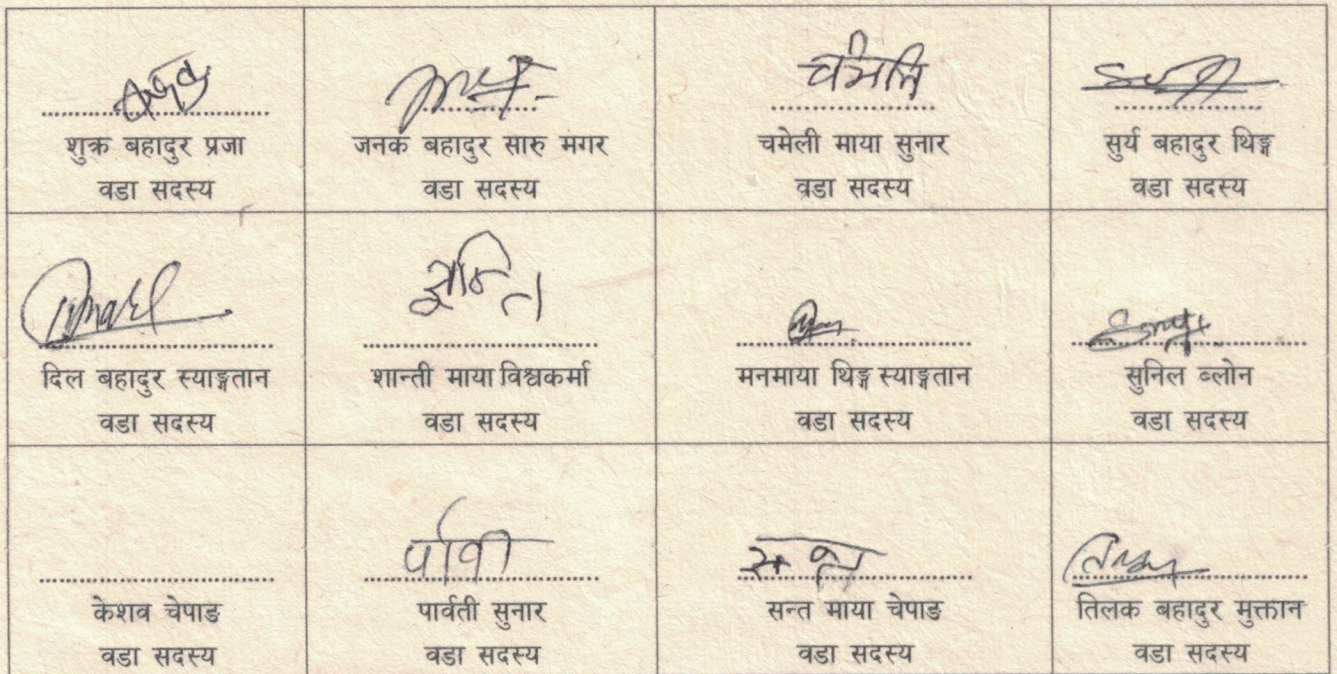 शुक्र बहादुर प्रजा
वडा सदस्य
जनक बहादुर सारु मगर
वडा सदस्य
चमेली
चमेली माया सुनार
वडा सदस्य
सुर्य बहादुर थिङ्ग
वडा सदस्य
दिल बहादुर स्याङ्गतान
वडा सदस्य
शान्ती माया विश्वकर्मा
वडा सदस्य
मनमाया थिङ्ग स्याङ्गतान
वडा सदस्य
सुनिल ब्लोन
वडा सदस्य
केशव चेपाङ
वडा सदस्य
पार्वती सुनार
वडा सदस्य
सन्त माया चेपाङ
वडा सदस्य
तिलक बहादुर मुक्तान
वडा सदस्य